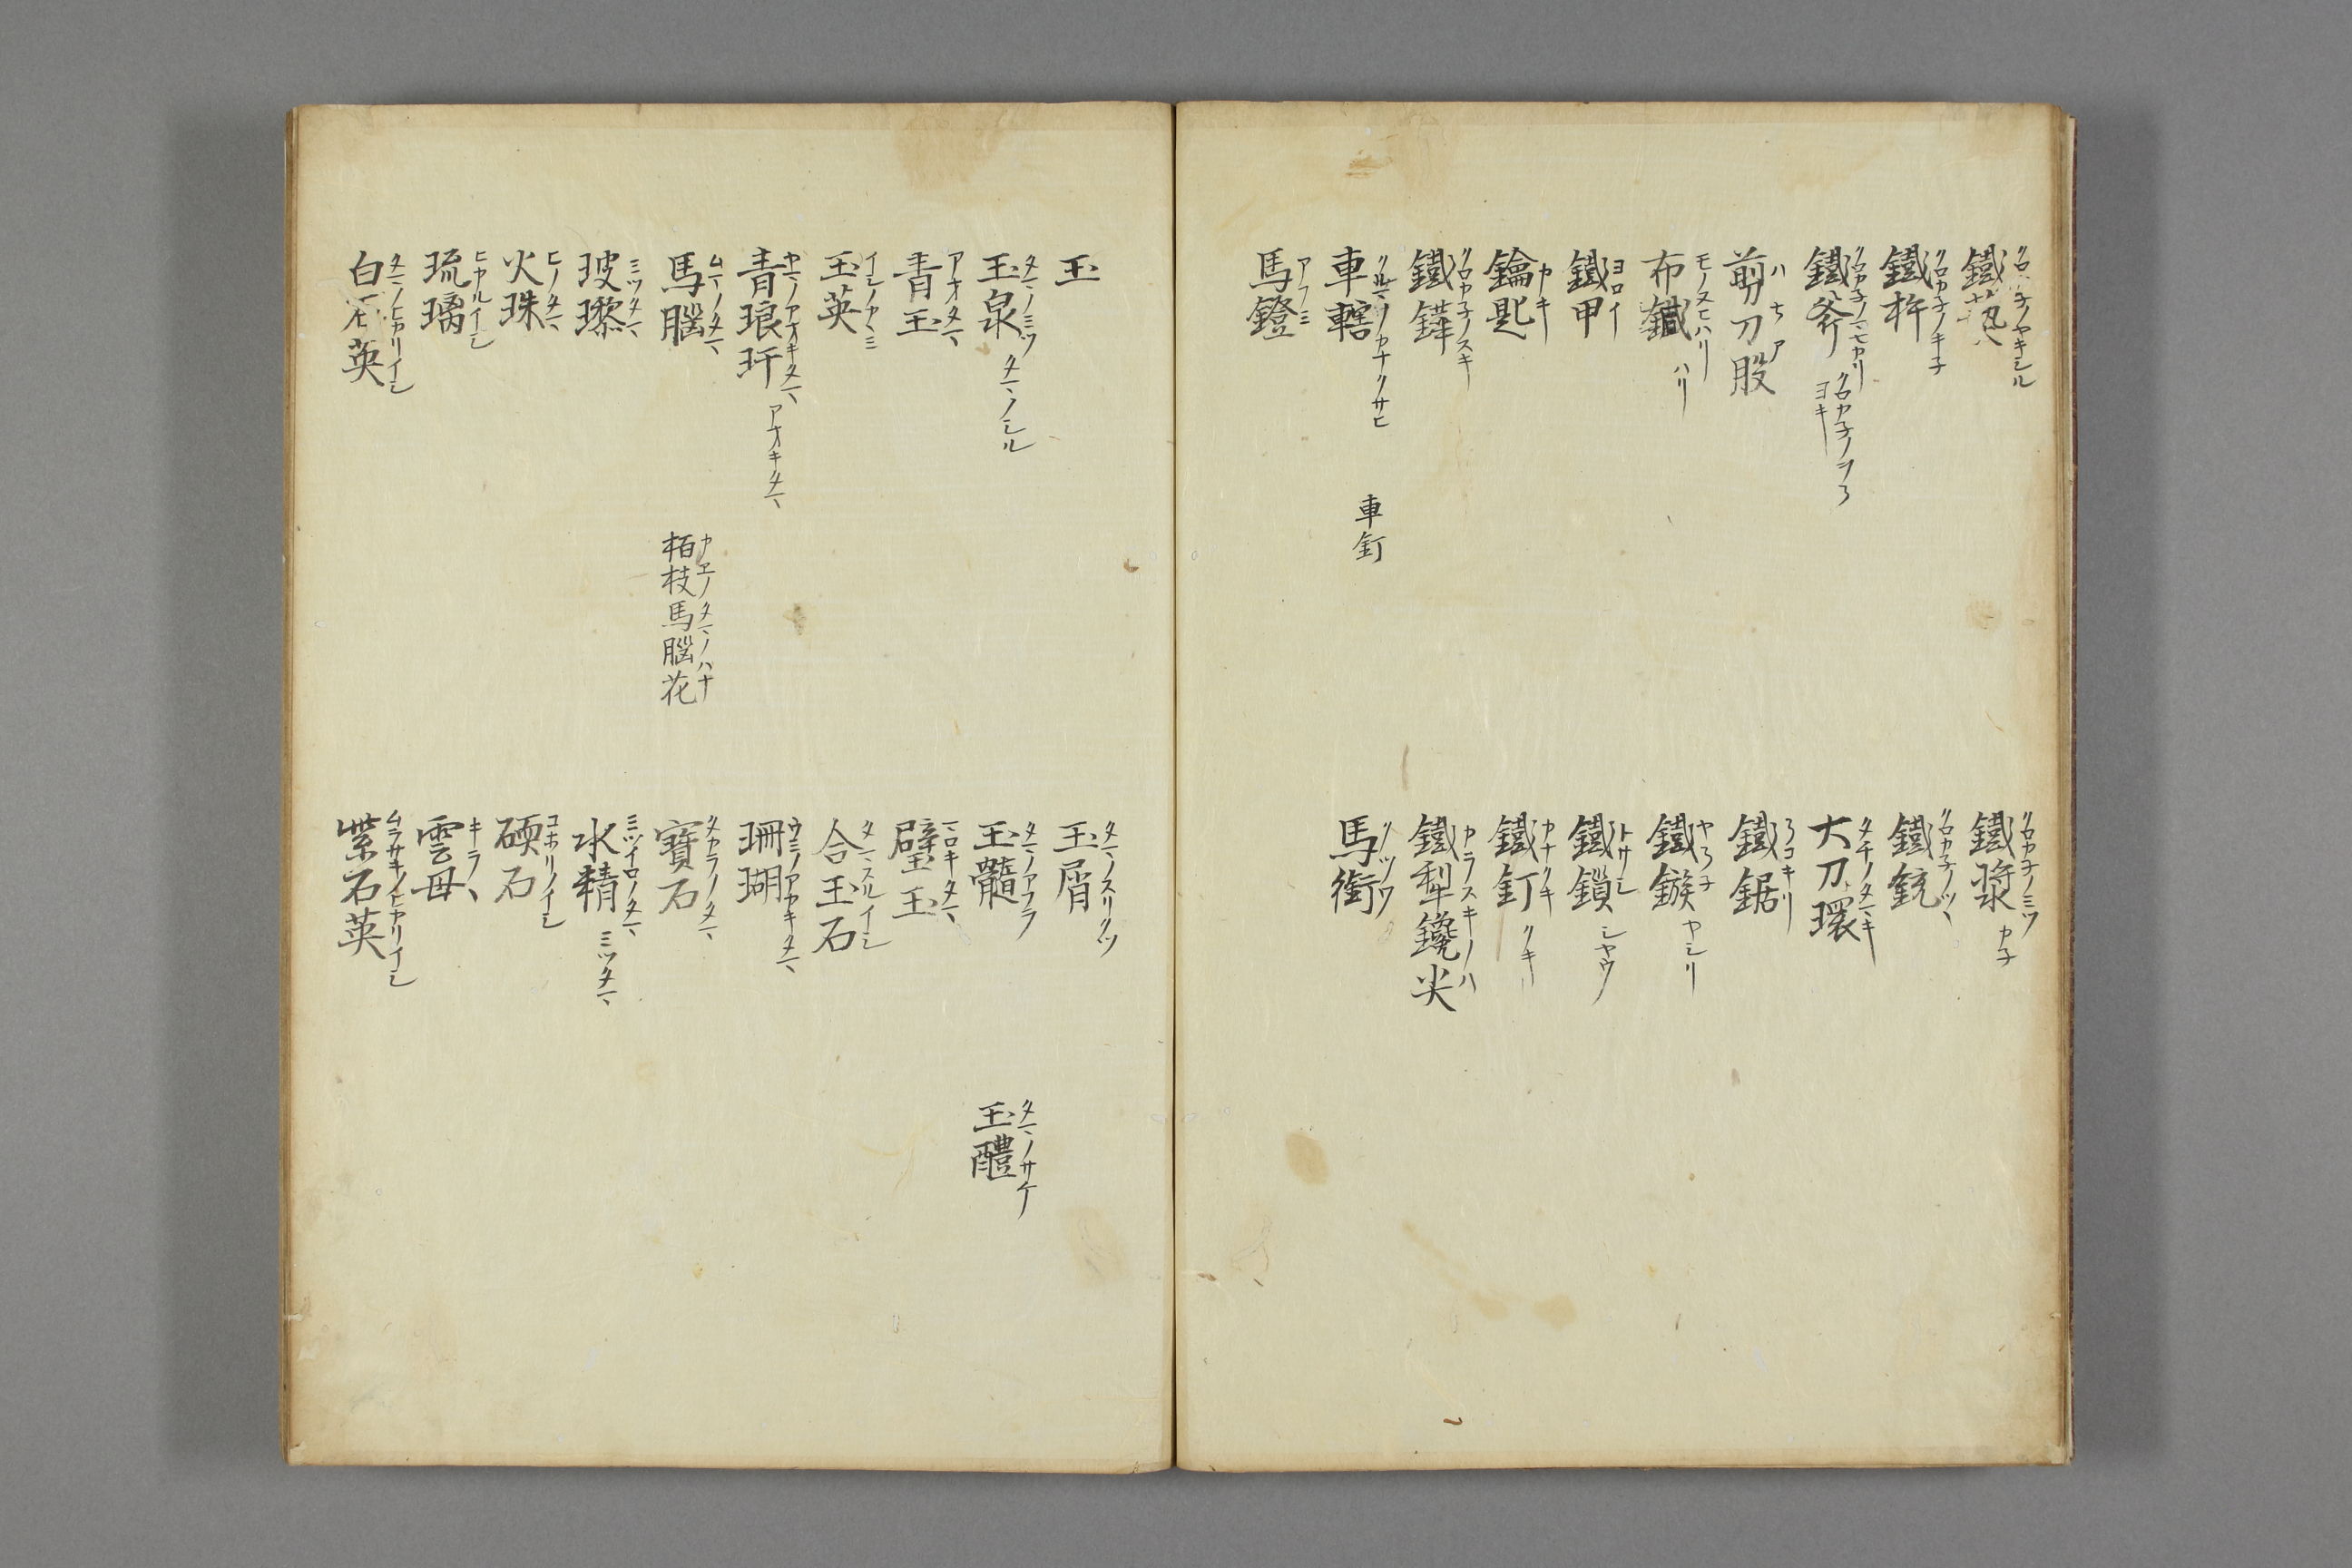 鐵爇
鐵漿 クロカ子ノミツ カ子
鐵杵 クロカ子ノキ子
鐵銃 クロカ子ノツヽ
鐵斧 ヨキ
大刀環
剪刀股
鐵鋸
布鍼 モノヌヒハリ ハリ
鐵鏃 ヤシリ
鐵甲 ヨロイ
鐵鎖 トサシ シヤウ
鑰匙 カキ
鐵釘 カナクキ クキ
鐵鏵 クロカ子ノスキ
鐵犁鑱尖 カラスキノハ
車轄 車釭
馬銜 クツワ
馬鐙 アフミ
玉
玉屑 タマノスリクツ
玉泉 タマノミツ タマノシル
玉髓 タマノアフラ
玉醴 タマノサケ
青玉 アオタマ
璧玉 マロキタマ
玉英 イシノカヽミ
合玉石 タマスルイシ
青琅玕 ヤマノアオキタマ アオキタマ
珊瑚 ウミノアカキタマ
馬腦 ムマノタマ
栢枝馬腦花 カヱノタマノハナ
寶石 タカラノタマ
玻瓈 ミツタマ
水精 ミツイロノタマ ミツタマ
火珠 ヒノタマ
碝石 コホリノイシ
琉璃 ヒカルイシ
雲母 キラヽ
白石英 タマノヒカリイシ
紫石英 ムラサキノヒカリイシ